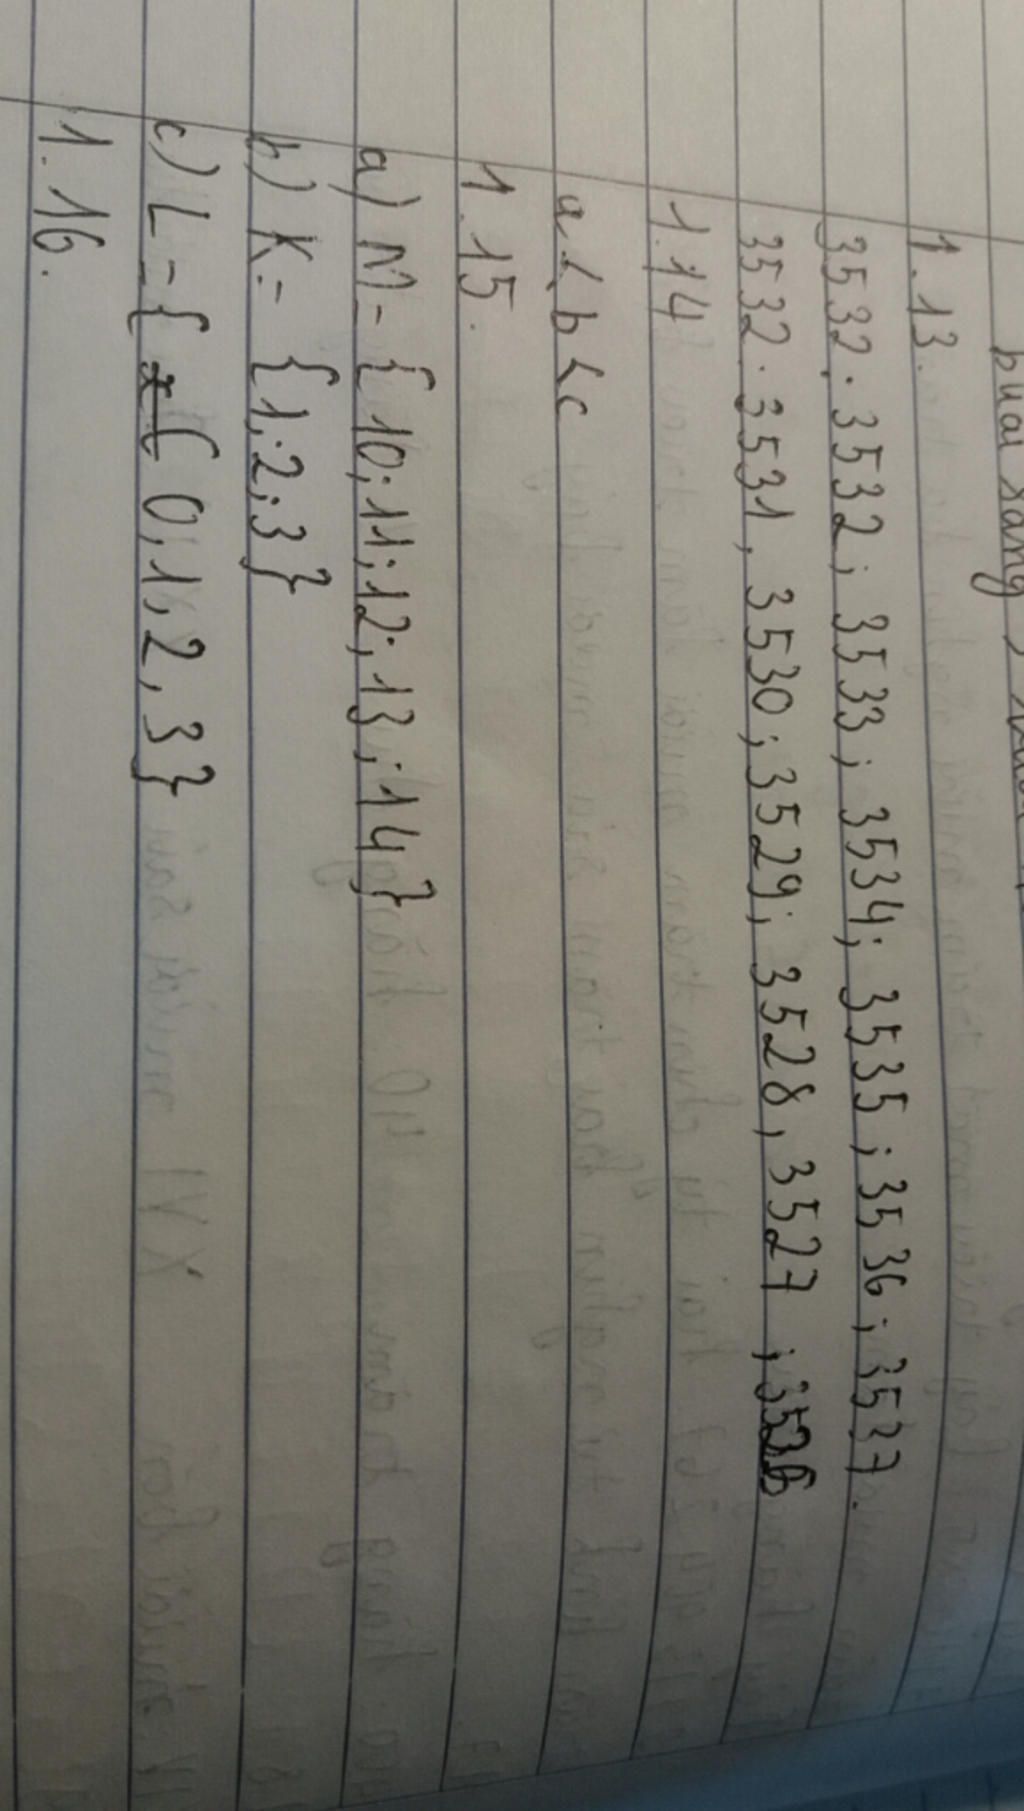 1.13.
3532. 3532; 3533; 3534; 3535; 3536; 3537.
3532. 3531, 3530; 3529; 3528, 3527; 3526
1.14
a < b < c
1.15.
a) M = {10; 11; 12; 13; 14}
b) K = {1; 2; 3}
c) L = { 0, 1, 2, 3}
1.16.